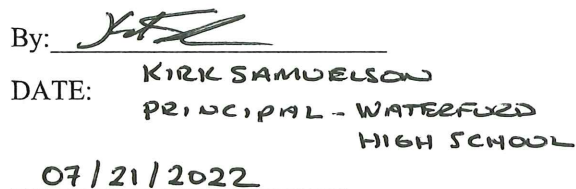 By:
DATE: KIRK SAMUELSON
PRINCIPAL - WATERFORD
HIGH SCHOOL
07/21/2022